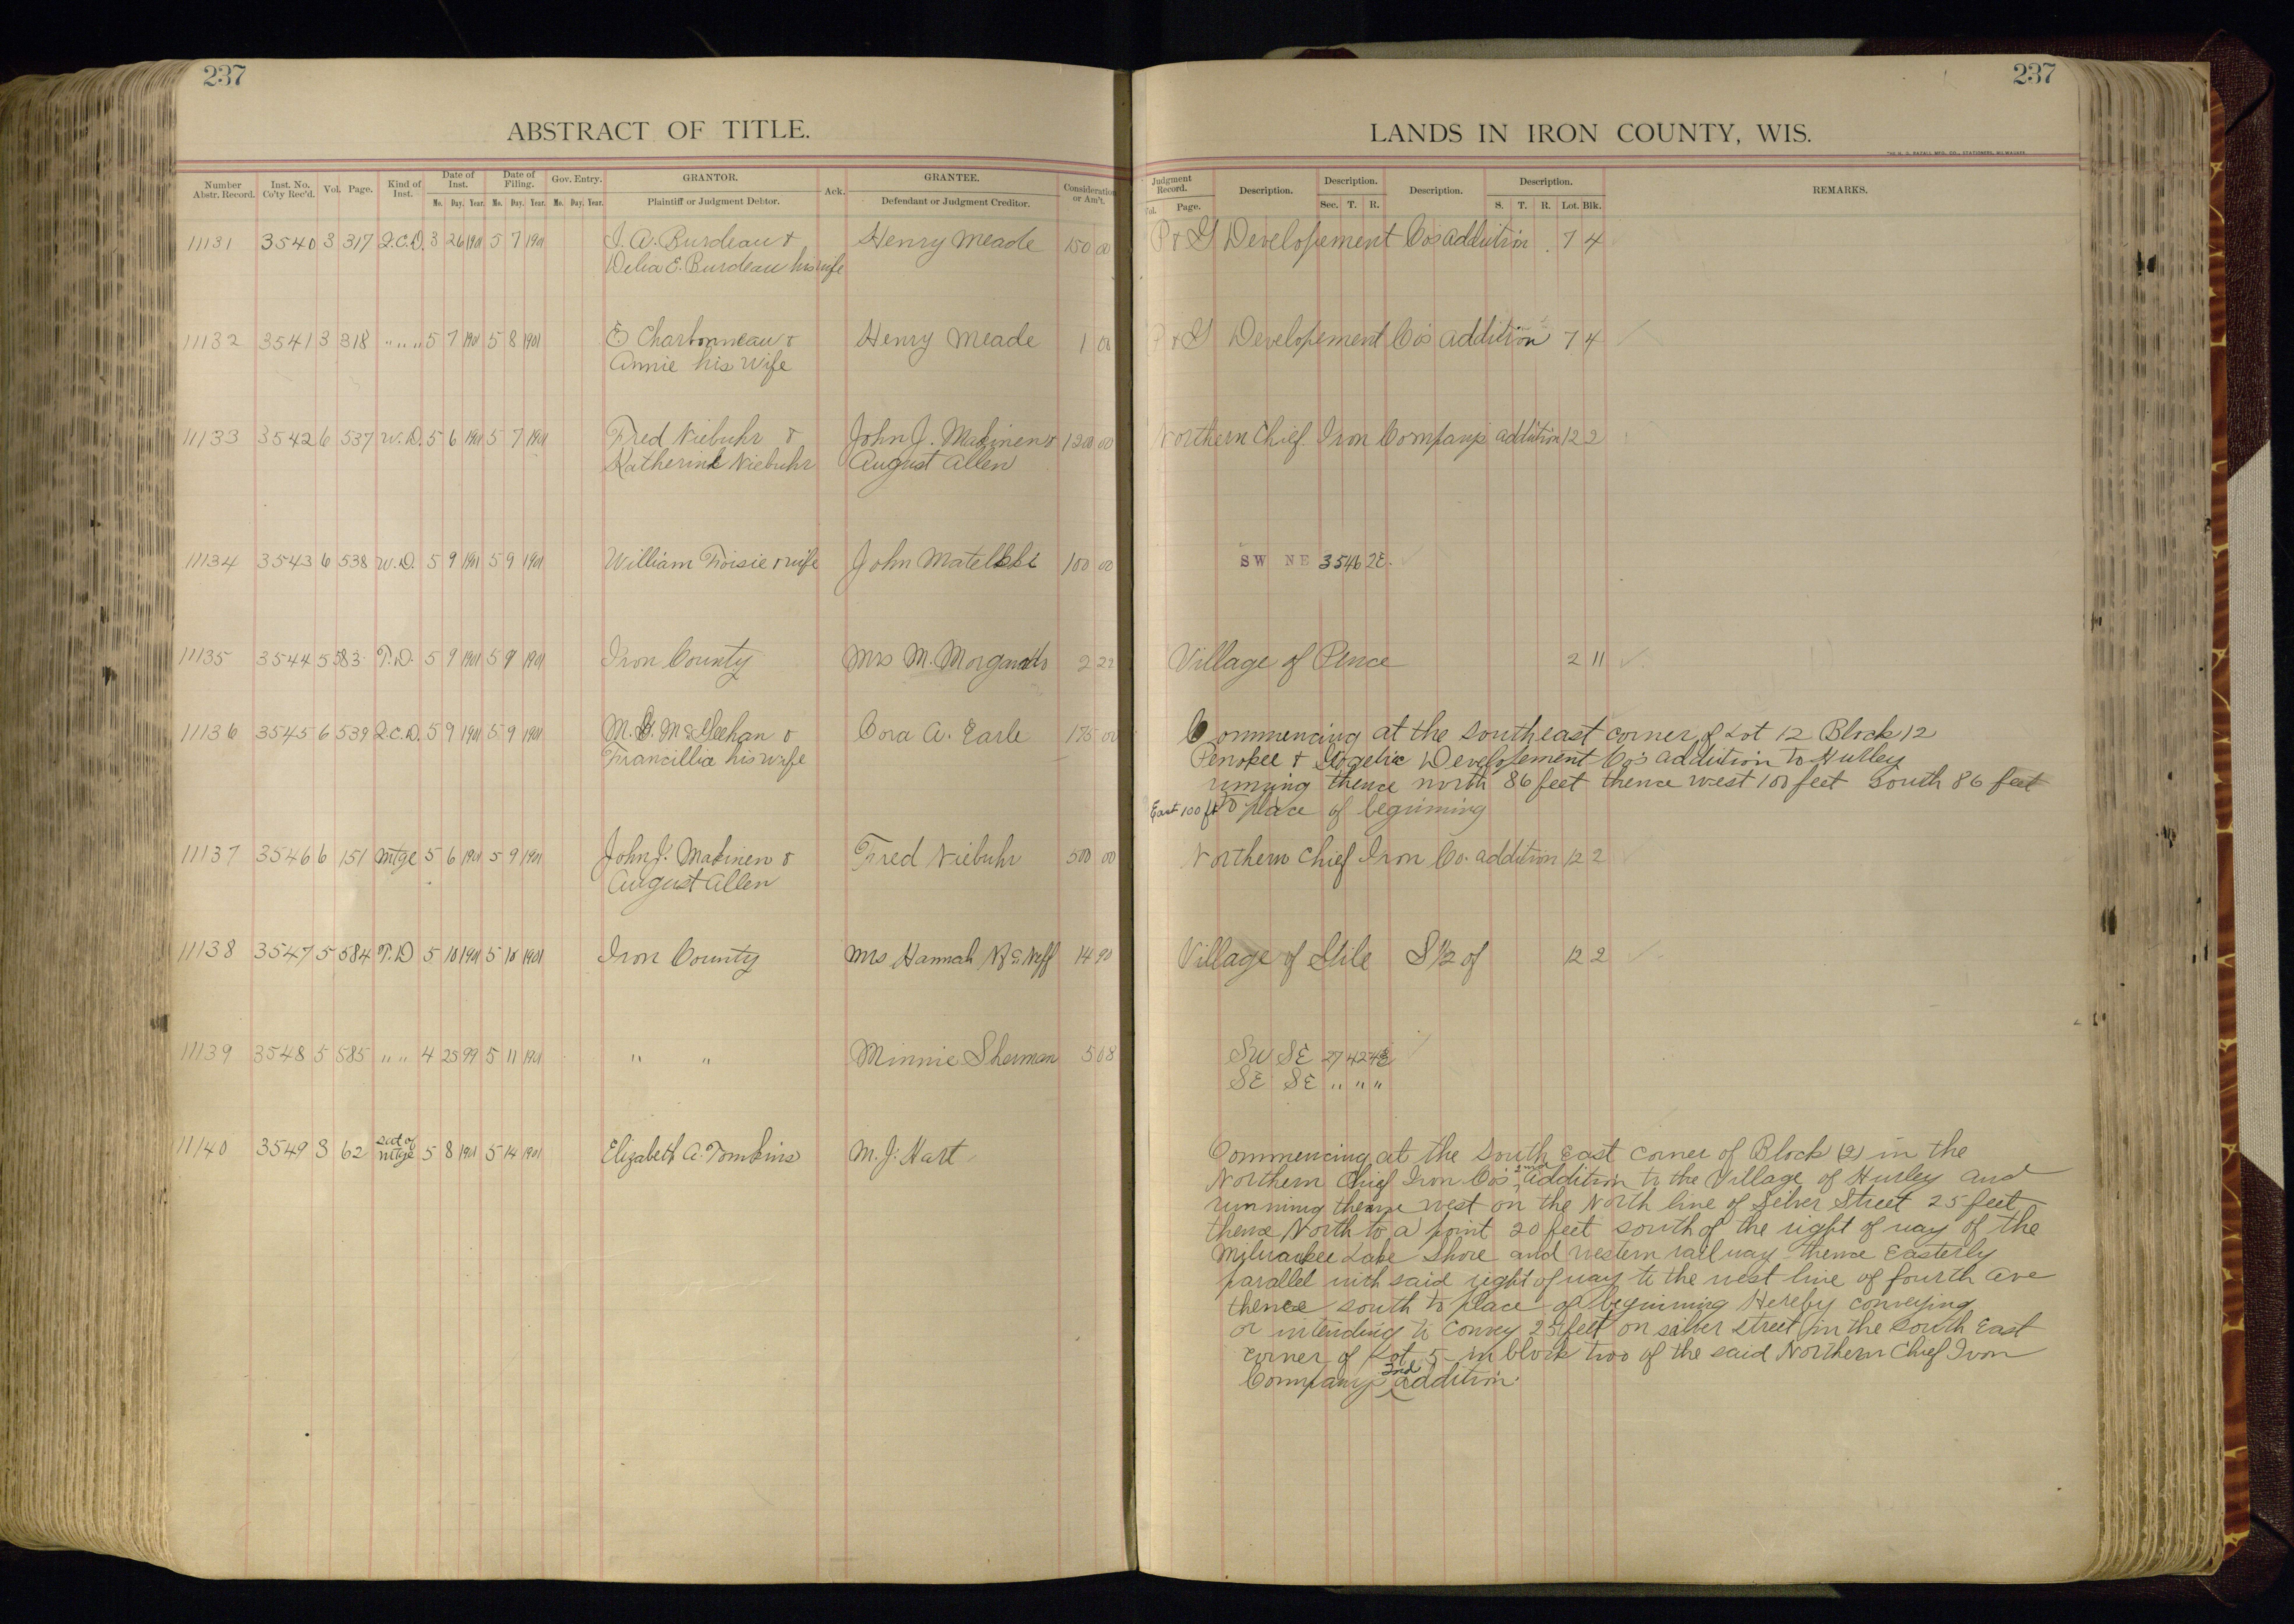 237
237
ABSTRACT OF TITLE.
LANDS IN IRON COUNTY, WIS.
Number Abstr. Record. Inst. No. Co'ty Rec'd. Vol. Page. Kind of Inst. Date of Inst. Mo. Day. Year. Date of Filing. Mo. Day. Year. Gov. Entry. Mo. Day. Year. GRANTOR. Plaintiff or Judgment Debtor. Ack. GRANTEE. Defendant or Judgment Creditor. Consideration or Am't.
Judgment Record. Vol. Page. Description. Description. Sec. T. R. Description. Description. S. T. R. Lot. Blk. REMARKS.
11131 3540 3 317 Q.C.D. 3 26 1901 5 7 1901 J. A. Burdeau & Henry Meade 150 00 P & G Developement Co's addition 7 4
Delia E. Burdeau his wife
11132 3541 3 318 " " " 5 7 1901 5 8 1901 E Charbonneau & Henry Meade 1 00 P & G Developement Co's addition 7 4
Annie his wife
11133 3542 6 537 W.D. 5 6 1901 5 7 1901 Fred Niebuhr & John J. Makinen & 1200 00 Northern Chief Iron Company's addition 12 2
Katherine Niebuhr August Allen
11134 3543 6 538 W.D. 5 9 1901 5 9 1901 William Foisie & wife John 100 00 SW NE 35 46 2E.
11135 3544 5 583 T.D. 5 9 1901 5 9 1901 Iron County Mrs M. 2 22 Village of Pence 2 11
11136 3545 6 539 Q.C.D. 5 9 1901 5 9 1901 M. G. McGeehan & Cora A. Earle 175 00 Commencing at the southeast corner of Lot 12 Block 12
Francillia his wife Penokee & Gogebic Developement Co's addition to Hurley
running thence north 86 feet thence west 100 feet South 86 feet
East 100 ft to place of beginning
11137 3546 6 151 Mtge 5 6 1901 5 9 1901 John J. Makinen & Fred Niebuhr 500 00 Northern Chief Iron Co. addition 12 2
August Allen
11138 3547 5 584 T.D 5 10 1901 5 10 1901 Iron County Mrs Hannah 14 90 Village of Gile S 1/2 of 12 2
11139 3548 5 585 " " 4 25 99 5 11 1901 " " Minnie Sherman 5 08 SW SE 27 42 4E
SE SE " " "
11140 3549 3 62 Sat of Mtge 5 8 1901 5 14 1901 Elizabeth A. Tomkins M. J. Hart Commencing at the South East corner of Block (2) in the
Northern Chief Iron Co's 2nd addition to the Village of Hurley and
running thence west on the North line of Silver Street 25 feet
thence North to a point 20 feet south of the right of way of the
Milwaukee Lake Shore and western railway thence Easterly
parallel with said right of way to the west line of fourth ave
thence south to place of beginning Hereby conveying
or intending to convey 25 feet on silver street in the South East
corner of Lot 5 in block two of the said Northern Chief Iron
Company's 2nd addition.